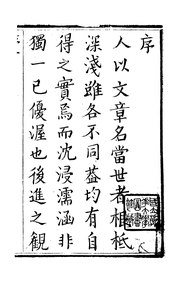 序
人以文章名當世者相柢
深淺雖各不同葢均有自
得之實焉而沈浸濡涵非
獨一已優渥也後進之觀